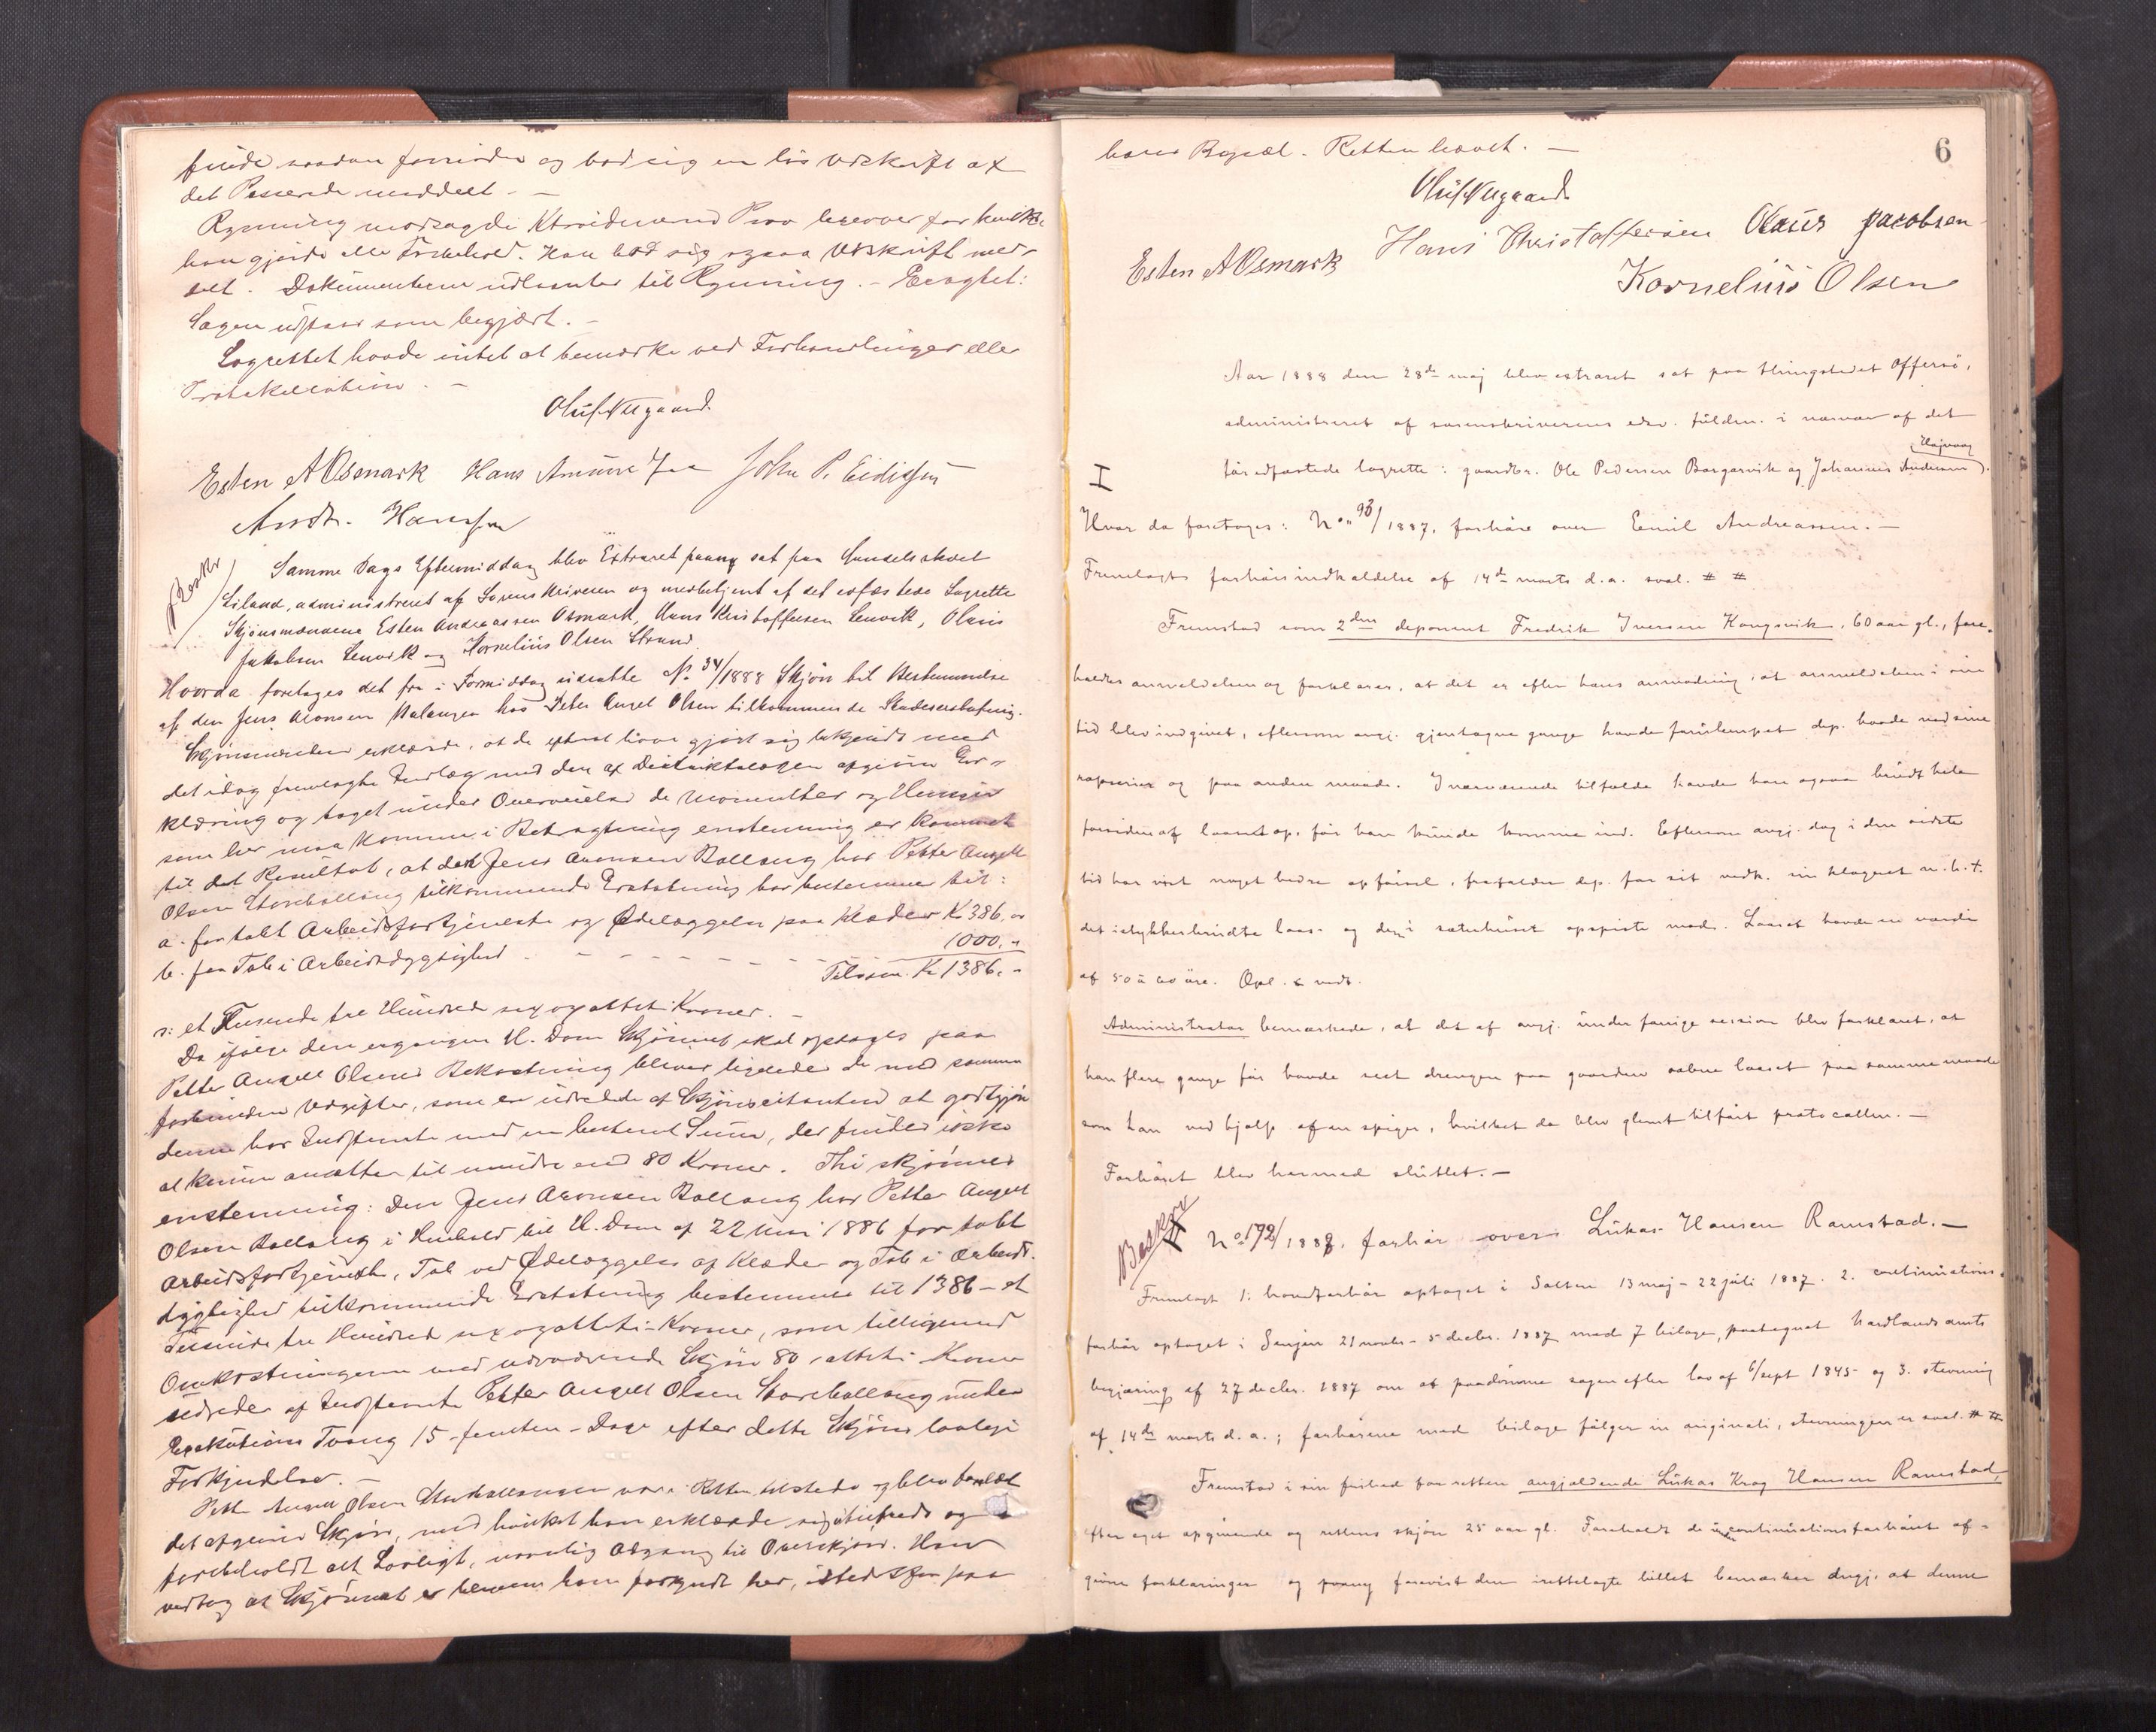 finde saadan fornöden og bad sig en lös Udskrift af
det Passerede meddelt. —
Rynning modsagde Ktraidnernes Paa herover for hvilke
han gjorde alle Forbehold. Han bad sig ogsaa Udskrift med-
delt. Dokumenterne udlaantes til Rynning. — Eragtet:
Sagen udstaar som begjært. —
Lagrettet havde intet at bemærke ved Forhandlinger eller
Protokollation. —
Esten A Osmark Hans John P. Eidissen
Andr. Hansen
Samme Dags Eftermiddag blev Extraret paany sat paa Lensmandsskvel
Liland, administreret af Sorenskriveren og medbetjent af det edfæstede Lagrette
Skjönsmændene Esten Andreassen Osmark, Hans Kristoffersen Lenvik, Olaus
Jakobsen Lenvik og Kornelius Olsen Strand.
Hvorda foretoges det fra i Formiddag udsatte No. 34/1888 Skjön til Bestemmelse
af den Jens Aronsen Balangen hos Peter Angel Olsen tilkommende Skadeserstatning.
Skjönsmændene erklærede, at de efterat have gjort sig bekjendt med
det idag fremlagte Indlæg med den af Distriktslægen afgivne Er-
klæring og taget under Overveielse de Momenter og Hensyn
som her maa komme i Betragtning enstemmig er kommet
til det Resultat, at den Jens Aronsen Ballang hos Petter Angell
Olsen Storeballang tilkommende Erstatning bör bestemmes til:
a. for tabt Arbeidsfortjeneste og Ödelæggelse paa Klæder K 386. "
b. for Tab i Arbeidsdygtighed - - - - - - - 1000. "
Tilsam. Kr 1386. "
s: et Tusende tre Hundrede sex og otteti Kroner. —
Da ifölge den ergangne U. Dom Skjönnet skal optages paa
Petter Angell Olsens Bekostning bliver ligeledes de med samme
forbundne Udgifter, som er udredede af Skjönscitanten at godtgjöre
denne hos Indstævnte med en bestemt Sum, der findes ikke
at kunne ansættes til mindre end 80 Kroner. Thi skjönnes
enstemmig: Den Jens Aronsen Ballang hos Petter Angell
Olsen Ballang i Henhold til U. Dom af 22 1886 for tabt
Arbeidsfortjeneste, Tab ved Ödelæggelse af Klæder og Tab i Arbeids-
dygtighed tilkommende Erstatning bestemmes til 1386 — et
Tusinde tre Hundrede sex og otteti — Kroner, som tilligemed
Omkostningerne ved nærværende Skjön 80 — otteti — Kroner
udredes af Indstævnte Petter Angell Olsen Storeballang under
Exekutions Tvang 15 — femten — Dage efter dette Skjöns lovlige
Forkyndelse. —
Petter Angell Olsen Storballangen var i Retten tilstede og blev forelæst
det afgivne Skjön, med hvilket han erklærede sig utilfreds og
forbeholdt alt Lovligt, navnlig Adgang til Overskjön. Han
vedtog at Skjönnet er bleven ham forkyndt her, istedetfor paa
6
hans Bopæl. Retten hævet. —
Hans Christoffersen Olaus Jacobsen
Esten A Osmark
Kornelius Olsen
Aar 1888 den 28de maj blev extraret sat paa thingstedet Offersö,
administreret af sorenskriverens edsv. fuldm. i nærvær af det
för edfæstede lagrette: gaardbr. Ole Pedersen Bargarvik og Johannes Andersen
I
Hvor da foretoges: No. 93/1887, forhöre over Emil Andreassen. —
Fremlagtes forhörsindkaldelse af 14de marts d.a. saal. # #
Fremstod som 2den deponent Fredrik Iversen Kongsvik, 60 aar gl., fore-
holdes anmeldelsen og forklarer, at det er efter hans anmodning, at anmeldelsen i sin
tid blev indgivet, eftersom angj. gjentagne gange havde forulempet dep. baade med sine
rapserier og paa anden maade. I nærværende tilfælde havde han ogsaa brudt hele
forsiden af laaset op, för han kunde komme ind. Eftersom angj. dog i den sidste
tid har vist noget bedre opförsel, frafalder dep. for sit vedk. sin klagret m. h. t.
det istykkerbrudte laas og den i sæterhuset opspiste mad. Laaset havde en værdi
af 50 à 60 öre. Opl. & vedt.
Administrator bemærkede, at det af angj. under forrige session blev forklaret, at
han flere gange för havde seet drengen paa gaarden aabne laaset paa samme maade
som han ved hjælp af en spiger, hvilket da blev glemt tilfört protocollen. —
Forhöret blev hermed sluttet. —
No 192/1888, forhör over Lukas Hansen Ramstad. —
Fremlagt 1. hovedforhör optaget i Salten 13 maj - 22 juli 1887. 2. continuations-
forhör optaget i Senjen 21 novbr. - 5 decbr. 1887 med 7 bilage, paategnet Nordlands amts
begjæring af 27 decbr. 1887 om at paadömme sagen efter lov af 6/sept 1845 og 3. stevning
af 14de marts d.a.; forhörene med bilage fölger in originali, stevningen er saal. # #
Fremstod i sin frihed for retten angjældende Lukas Krog Hansen Ramstad,
efter eget opgivende og rettens skjön 25 aar gl. Foreholdt de under continuationsforhöret af-
givne forklaringer og paany forevist den irettelagte billet bemærker angj. at denne